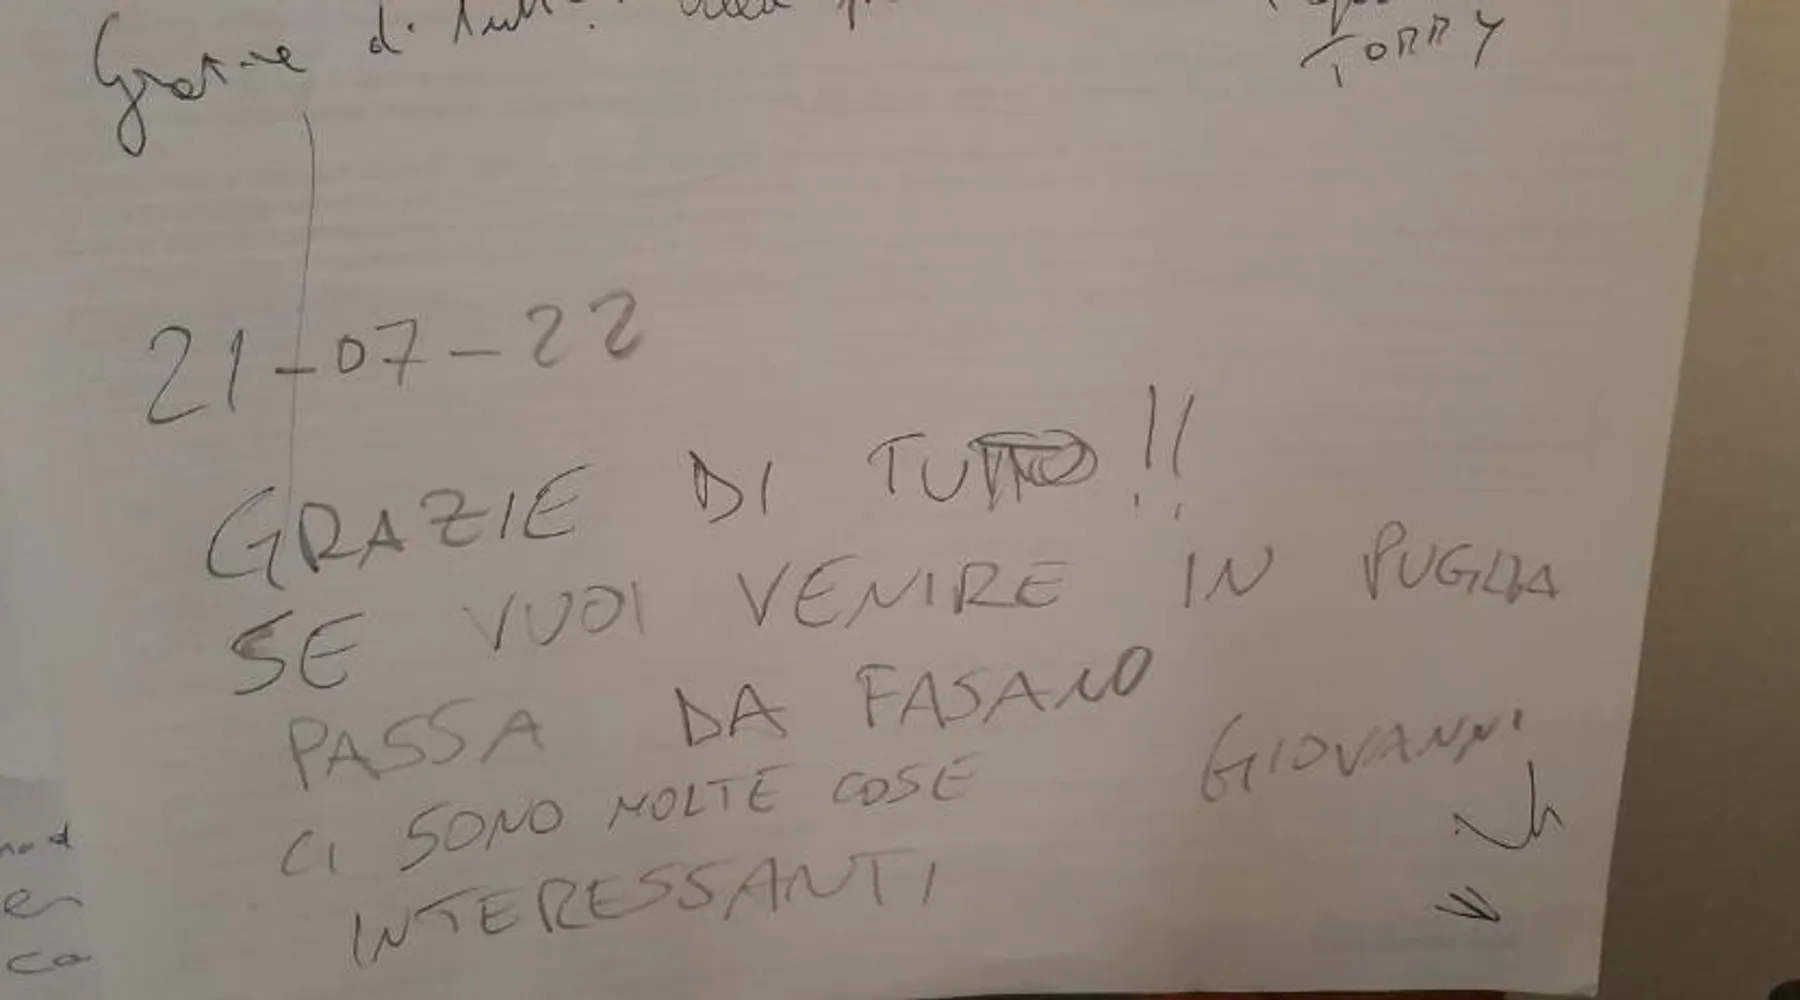 Grazie di tutto!
TORRY
21-07-22
GRAZIE DI TUTTO!!
SE VUOI VENIRE IN PUGLIA
PASSA DA FASANO
CI SONO MOLTE COSE
INTERESSANTI
GIOVANNI